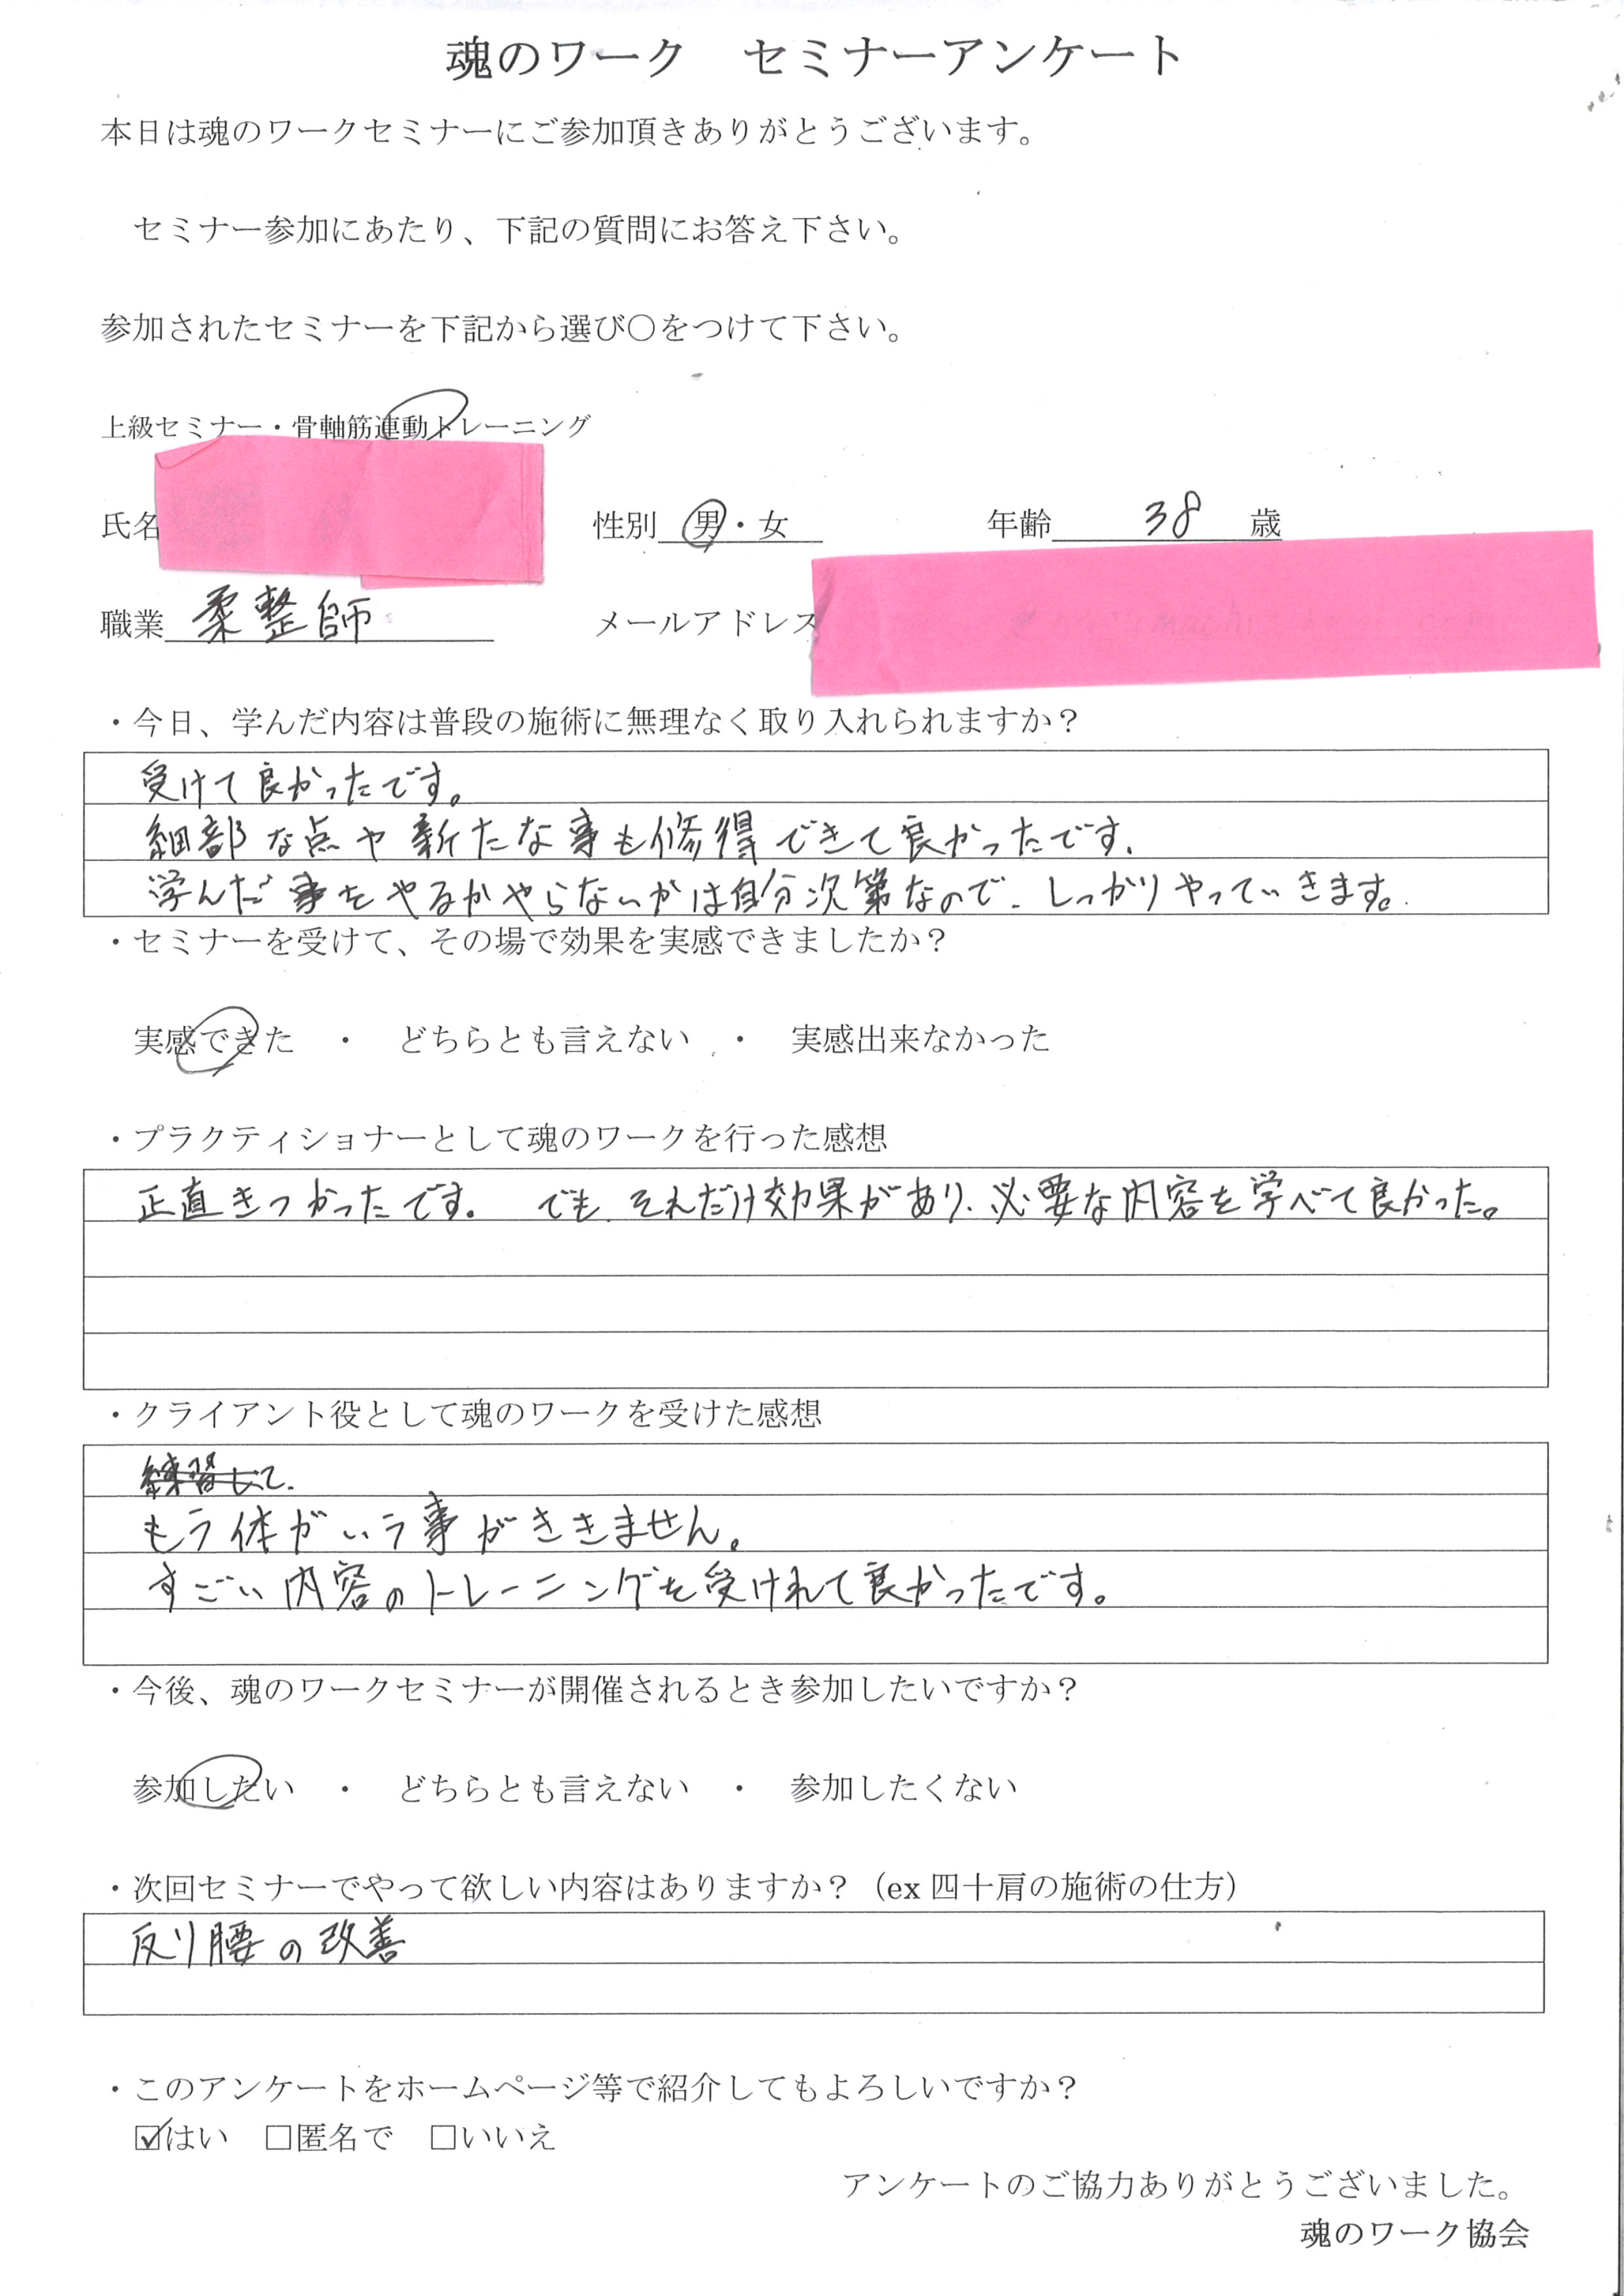 魂のワーク　セミナーアンケート
本日は魂のワークセミナーにご参加頂きありがとうございます。
セミナー参加にあたり、下記の質問にお答え下さい。
参加されたセミナーを下記から選び〇をつけて下さい。
上級セミナー・骨軸筋連動トレーニング
氏名 性別 男・女 年齢 38 歳
職業 柔整師 メールアドレス
・今日、学んだ内容は普段の施術に無理なく取り入れられますか？
受けて良かったです。
細部な点や新たな事も修得できて良かったです.
学んだ事をやるかやらないかは自分次第なので、しっかりやっていきます。
・セミナーを受けて、その場で効果を実感できましたか？
実感できた　・　どちらとも言えない　・　実感出来なかった
・プラクティショナーとして魂のワークを行った感想
正直きつかったです。でも、それだけ効果があり、必要な内容を学べて良かった。
・クライアント役として魂のワークを受けた感想
練習して.
もう体がいう事がききません。
すごい内容のトレーニングを受けれて良かったです。
・今後、魂のワークセミナーが開催されるとき参加したいですか？
参加したい　・　どちらとも言えない　・　参加したくない
・次回セミナーでやって欲しい内容はありますか？（ex 四十肩の施術の仕方）
反り腰の改善
・このアンケートをホームページ等で紹介してもよろしいですか？
☑はい　□匿名で　□いいえ
アンケートのご協力ありがとうございました。
魂のワーク協会